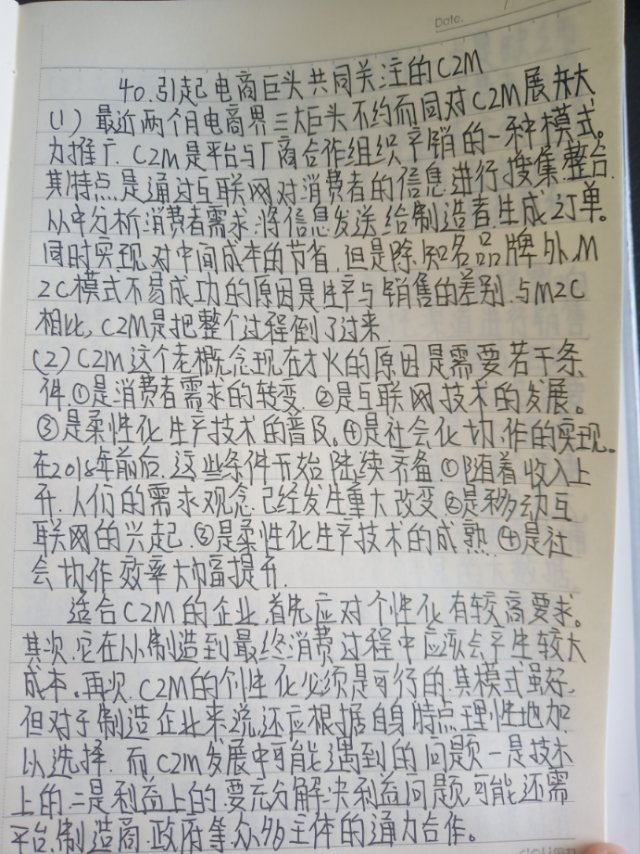 Date.
40.引起电商巨头共同关注的C2M
(1) 最近两个月电商界三大巨头不约而同对C2M展开大
力推广. C2M是平台与厂商合作组织产销的一种模式。
其特点.是通过互联网对消费者的信息进行搜集整合.
从中分析消费者需求.将信息发送给制造者.生成订单。
同时实现对中间成本的节省.但是除知名品牌外.M
2C模式不易成功的原因是生产与销售的差别.与M2C
相比, C2M是把整个过程倒了过来.
(2) C2M这个老概念现在才火的原因是需要若干条
件.①是消费者需求的转变 ②是互联网技术的发展。
③是柔性化生产技术的普及。④是社会化协作的实现。
在2018年前后.这些条件开始陆续齐备.①随着收入上
升.人们的需求观念已经发生重大改变②是移动互
联网的兴起.③是柔性化生产技术的成熟.④是社
会协作效率大幅提升.
适合C2M的企业.首先应对个性化有较高要求。
其次.它在从制造到最终消费过程中应该会产生较大
成本。再次.C2M的个性化必须是可行的.其模式虽好,
但对于制造企业来说.还应根据自身特点理性地加
以选择.而C2M发展中可能遇到的问题一是技术
上的.二是利益上的.要充分解决利益问题.可能还需
平台.制造商.政府等众多主体的通力合作。